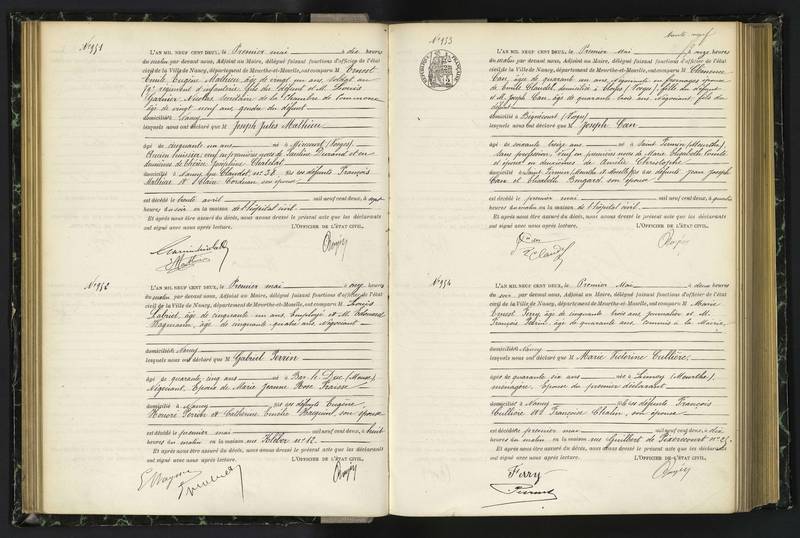 Nº951
L'AN MIL NEUF CENT DEUX, le Premier mai à dix heures
du matin par devant nous, Adjoint au Maire, délégué faisant fonctions d'officier de l'état
civil de la Ville de Nancy, département de Meurthe-et-Moselle, ont comparu M Ernest
Emile Eugène Mathieu, âgé de vingt un ans, soldat au
régiment d'infanterie, fils du défunt et M. Louis
Nicolas de la Chambre de Commerce
âgé de vingt neuf ans, gendre du défunt
domiciliés à Nancy
lesquels nous ont déclaré que M Joseph Jules Mathieu
âgé de cinquante un ans né à Mirecourt (Vosges)
Ancien huissier, veuf en premières noces de Pauline Durand et en
deuxièmes de Joséphine Chatelat
domicilié à Nancy, rue Claudot, nº 38 fils des défunts François
Mathieu et Claire son épouse
est décédé le trente avril mil neuf cent deux, à sept
heures du soir en la maison de l'hôpital civil
Et après nous être assuré du décès, nous avons dressé le présent acte que les déclarants
ont signé avec nous après lecture. L'OFFICIER DE L'ÉTAT CIVIL,
Nº952
L'AN MIL NEUF CENT DEUX, le Premier mai à onze heures
du matin par devant nous, Adjoint au Maire, délégué faisant fonctions d'officier de l'état
civil de la Ville de Nancy, département de Meurthe-et-Moselle, ont comparu M Louis
Gabriel, âgé de cinquante un ans, Employé et M. Edouard
Wagmann, âgé de cinquante quatre ans, négociant
domiciliés à Nancy
lesquels nous ont déclaré que M Gabriel Perrin
âgé de quarante cinq ans né à Bar-le-Duc (Meuse),
Négociant, Epoux de Marie Jeanne Rose Fraisse
domicilié à Nancy fils des défunts Eugène
Honoré Perrin et Catherine Emilie son épouse
est décédé le premier mai mil neuf cent deux, à huit
heures du matin en la maison rue Kléber nº 12
Et après nous être assuré du décès, nous avons dressé le présent acte que les déclarants
ont signé avec nous après lecture. L'OFFICIER DE L'ÉTAT CIVIL,
Nº953
L'AN MIL NEUF CENT DEUX, le Premier Mai à onze heures
du matin par devant nous, Adjoint au Maire, délégué faisant fonctions d'officier de l'état
civil de la Ville de Nancy, département de Meurthe-et-Moselle, ont comparu M Clémence
Can, âgée de quarante un ans, Négociante en fromages, épouse
de Emile Claudel, domiciliée à (Vosges), fille du défunt
et M. Joseph Can, âgé de quarante trois ans, Négociant, fils du
défunt
domicilié à Bégnécourt (Vosges)
lesquels nous ont déclaré que M Joseph Can
âgé de soixante treize ans né à Saint Firmin (Meurthe),
sans profession, veuf en premières noces de Marie Elisabeth
et époux en deuxièmes de Amélie Christophe
domicilié à Saint Firmin, Meurthe et Moselle fils des défunts Jean Joseph
Can et Elisabeth son épouse
est décédé le premier mai mil neuf cent deux, à quatre
heures du matin en la maison de l'hôpital civil
Et après nous être assuré du décès, nous avons dressé le présent acte que les déclarants
ont signé avec nous après lecture. L'OFFICIER DE L'ÉTAT CIVIL,
Can
E Claudel
Nº954
L'AN MIL NEUF CENT DEUX, le Premier Mai à deux heures
du soir par devant nous, Adjoint au Maire, délégué faisant fonctions d'officier de l'état
civil de la Ville de Nancy, département de Meurthe-et-Moselle, ont comparu M Marie
Ernest Ferry, âgé de cinquante trois ans, journalier et M.
François, âgé de quarante ans, commis à la Mairie
domiciliés à Nancy
lesquels nous ont déclaré que M Marie Victorine Cullière
âgée de quarante six ans née à (Meurthe),
ménagère, épouse du premier déclarant
domiciliée à Nancy fille des défunts François
Cullière et Françoise son épouse
est décédée le premier mai mil neuf cent deux, à dix
heures du matin en la maison rue Guilbert de Pixerécourt nº 25
Et après nous être assuré du décès, nous avons dressé le présent acte que les déclarants
ont signé avec nous après lecture. L'OFFICIER DE L'ÉTAT CIVIL,
Ferry